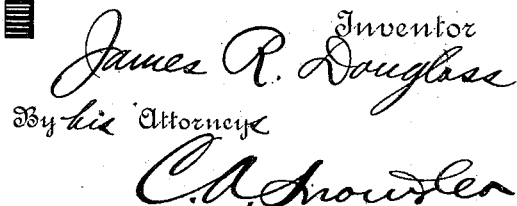 Inventor
James R. Douglass
By his Attorneys
C.A. Snow & Co.